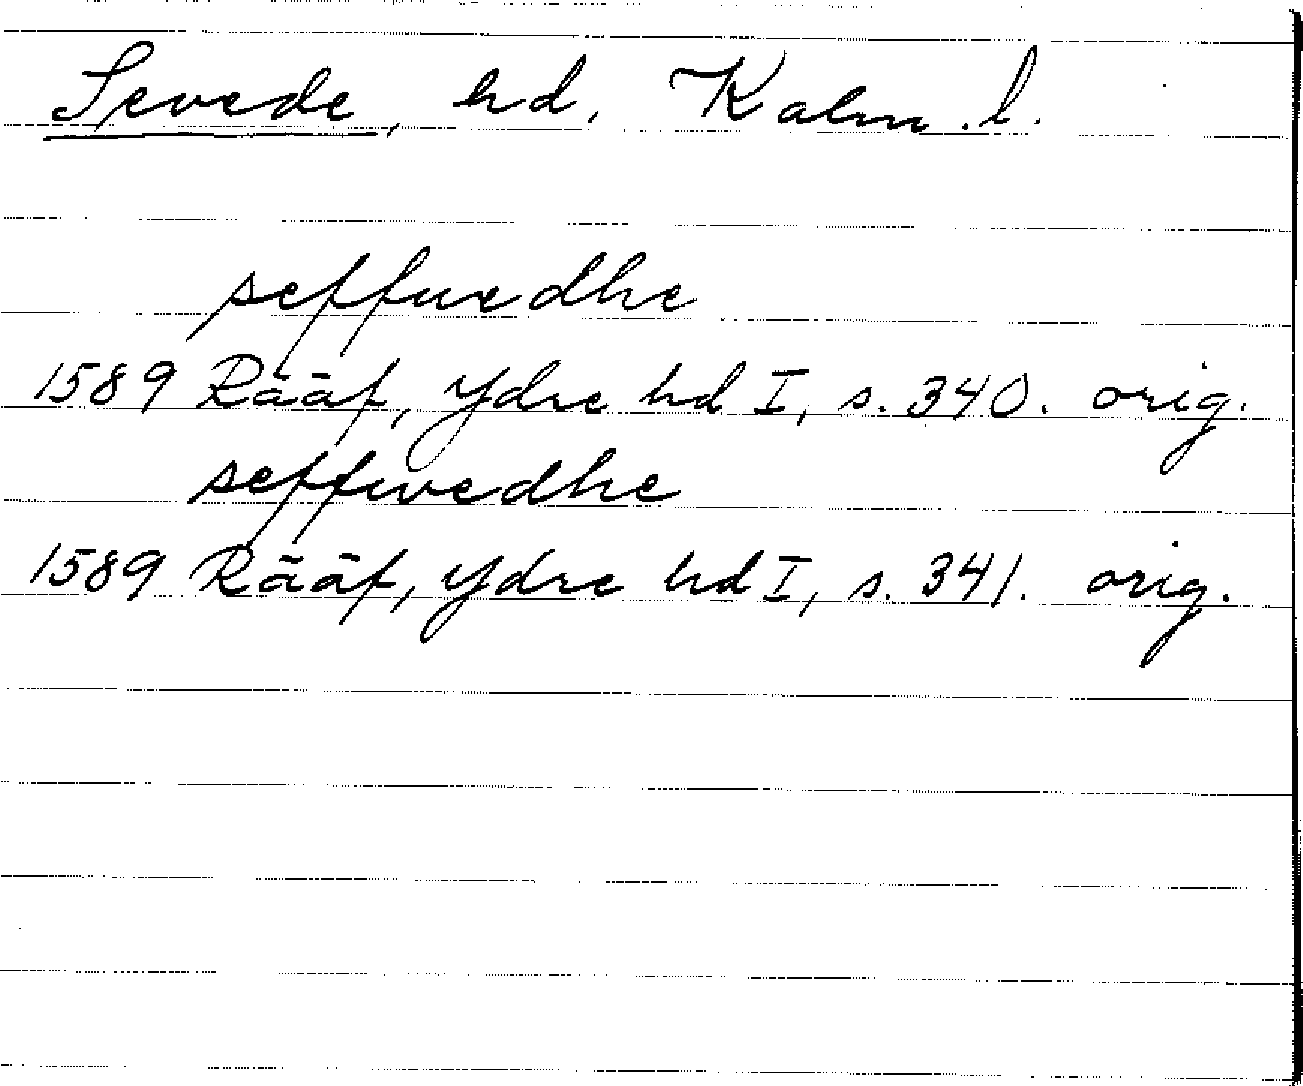 Sevede, hd, Kalm. l.
seffuedhe
1589 Rääf, Ydre hd I, s. 340. orig.
seffwedhe
1589 Rääf, Ydre hd I, s. 341. orig.